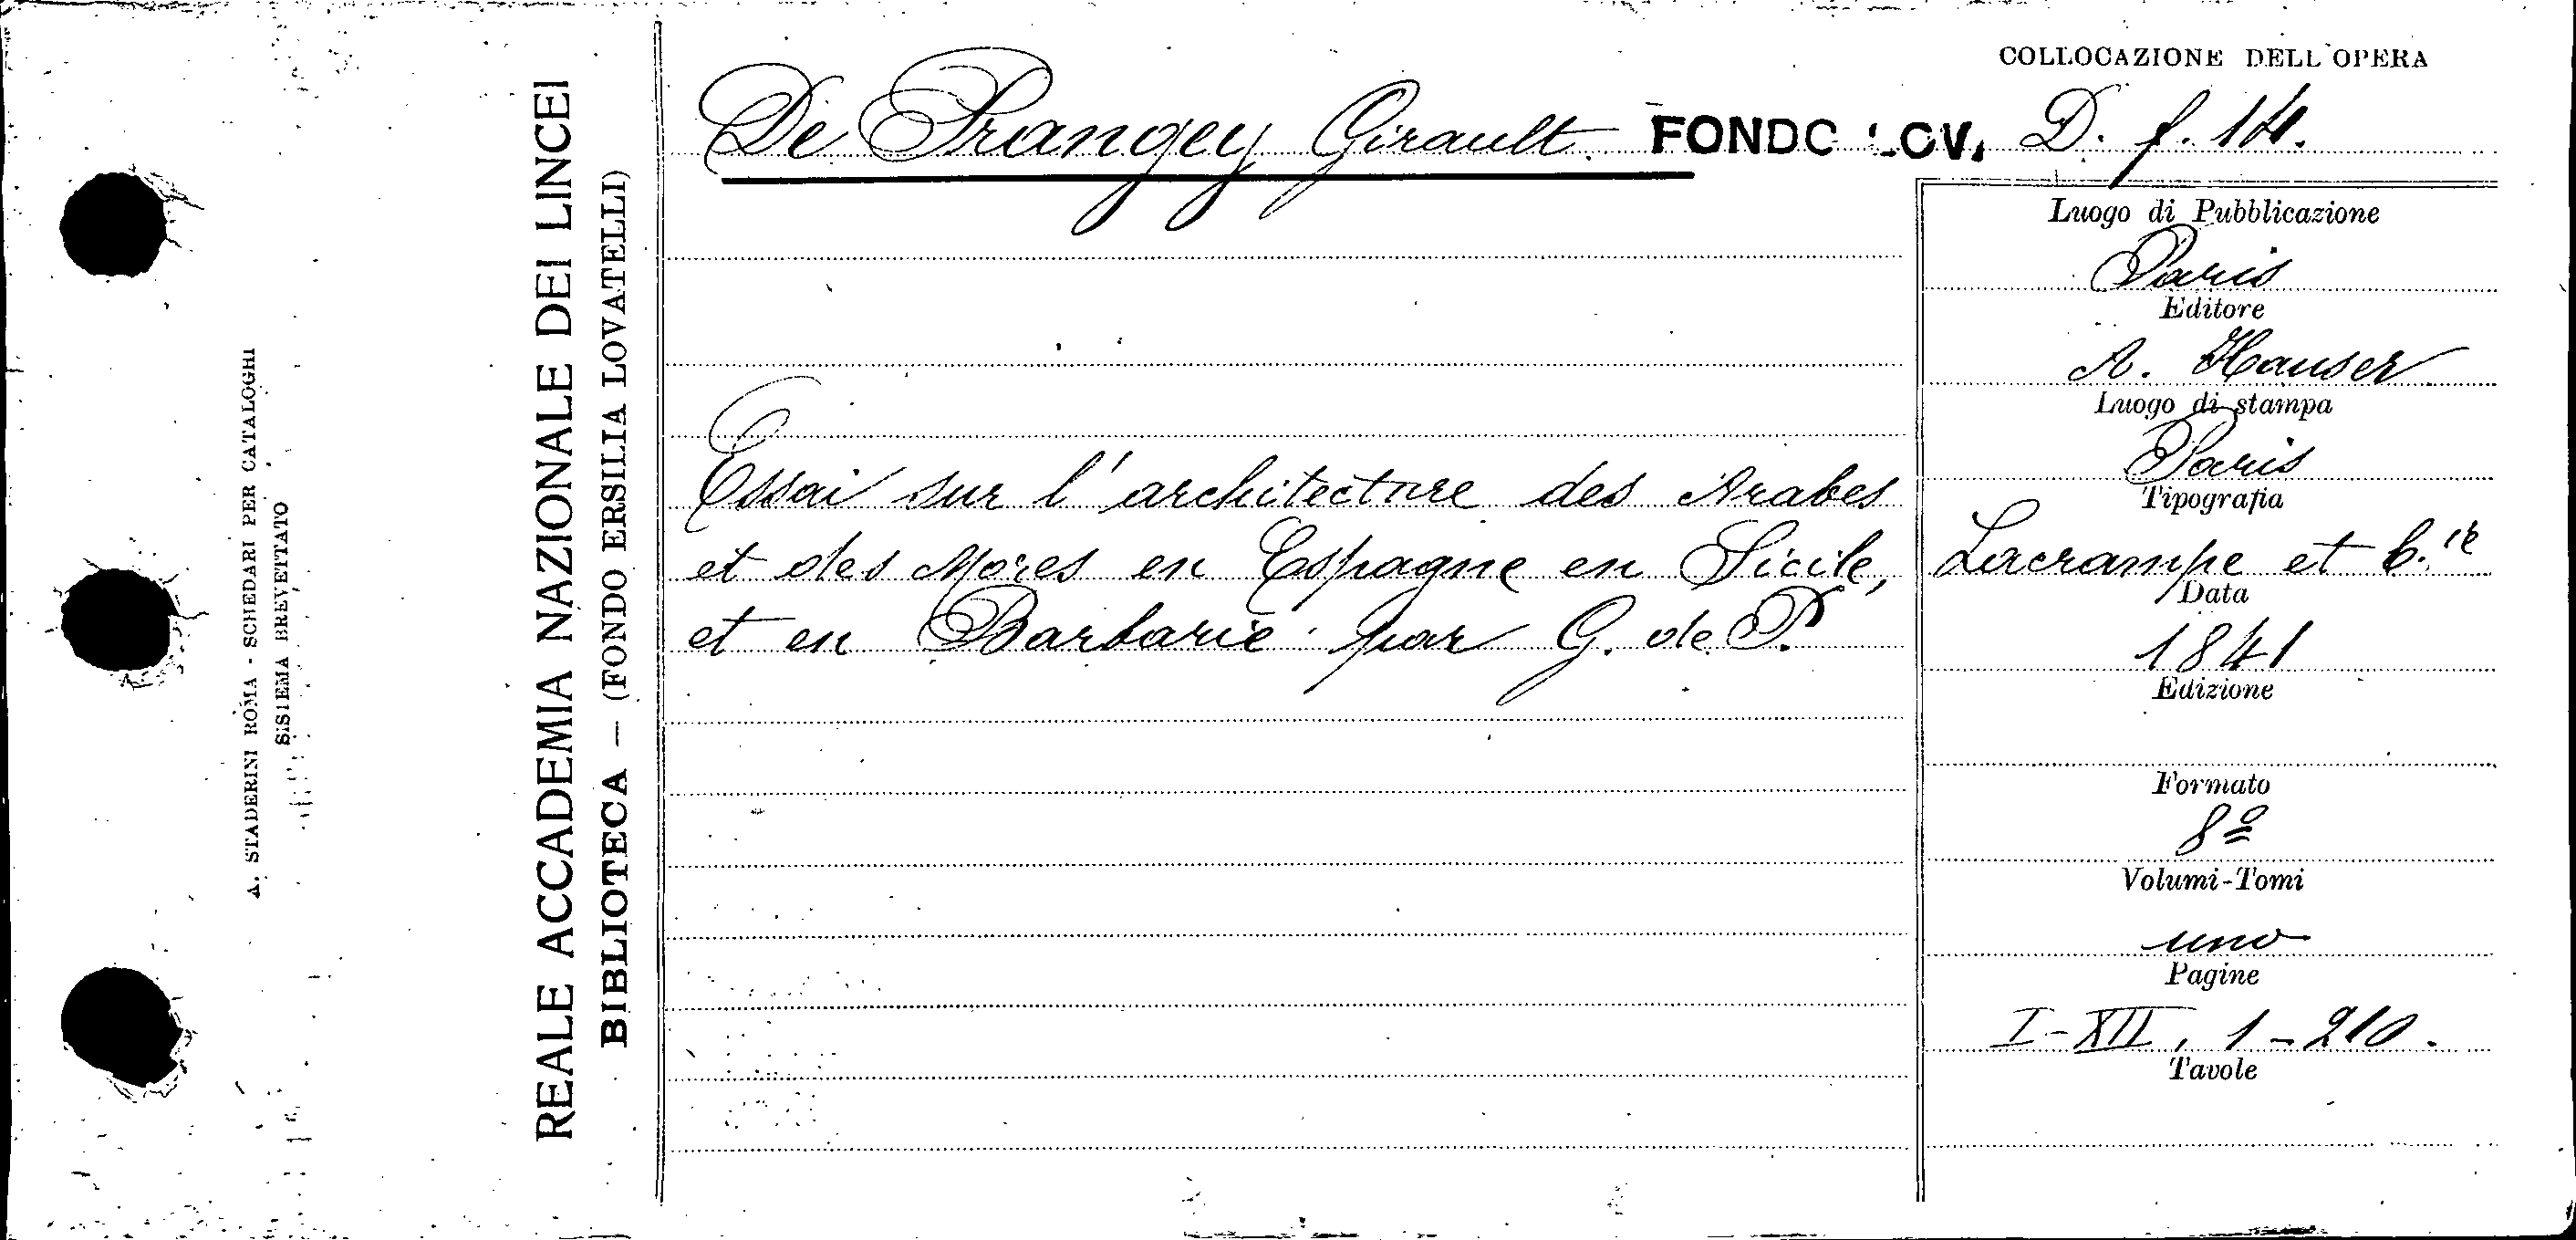 COLLOCAZIONE DELL'OPERA
De Prangey Girault. FONDO LOV. D. f. 14.
Essai sur l'architecture des Arabes
et des Mores en Espagne en Sicile,
et en Barbarie par G. de P.
Luogo di Pubblicazione
Paris
Editore
A. Hauser
Luogo di stampa
Paris
Tipografia
Lacrampe et C.ie
Data
1841
Edizione
Formato
8º
Volumi-Tomi
uno
Pagine
I-XII, 1-210.
Tavole
REALE ACCADEMIA NAZIONALE DEI LINCEI
BIBLIOTECA — (FONDO ERSILIA LOVATELLI)
A. STADERINI ROMA - SCHEDARI PER CATALOGHI
SISTEMA BREVETTATO